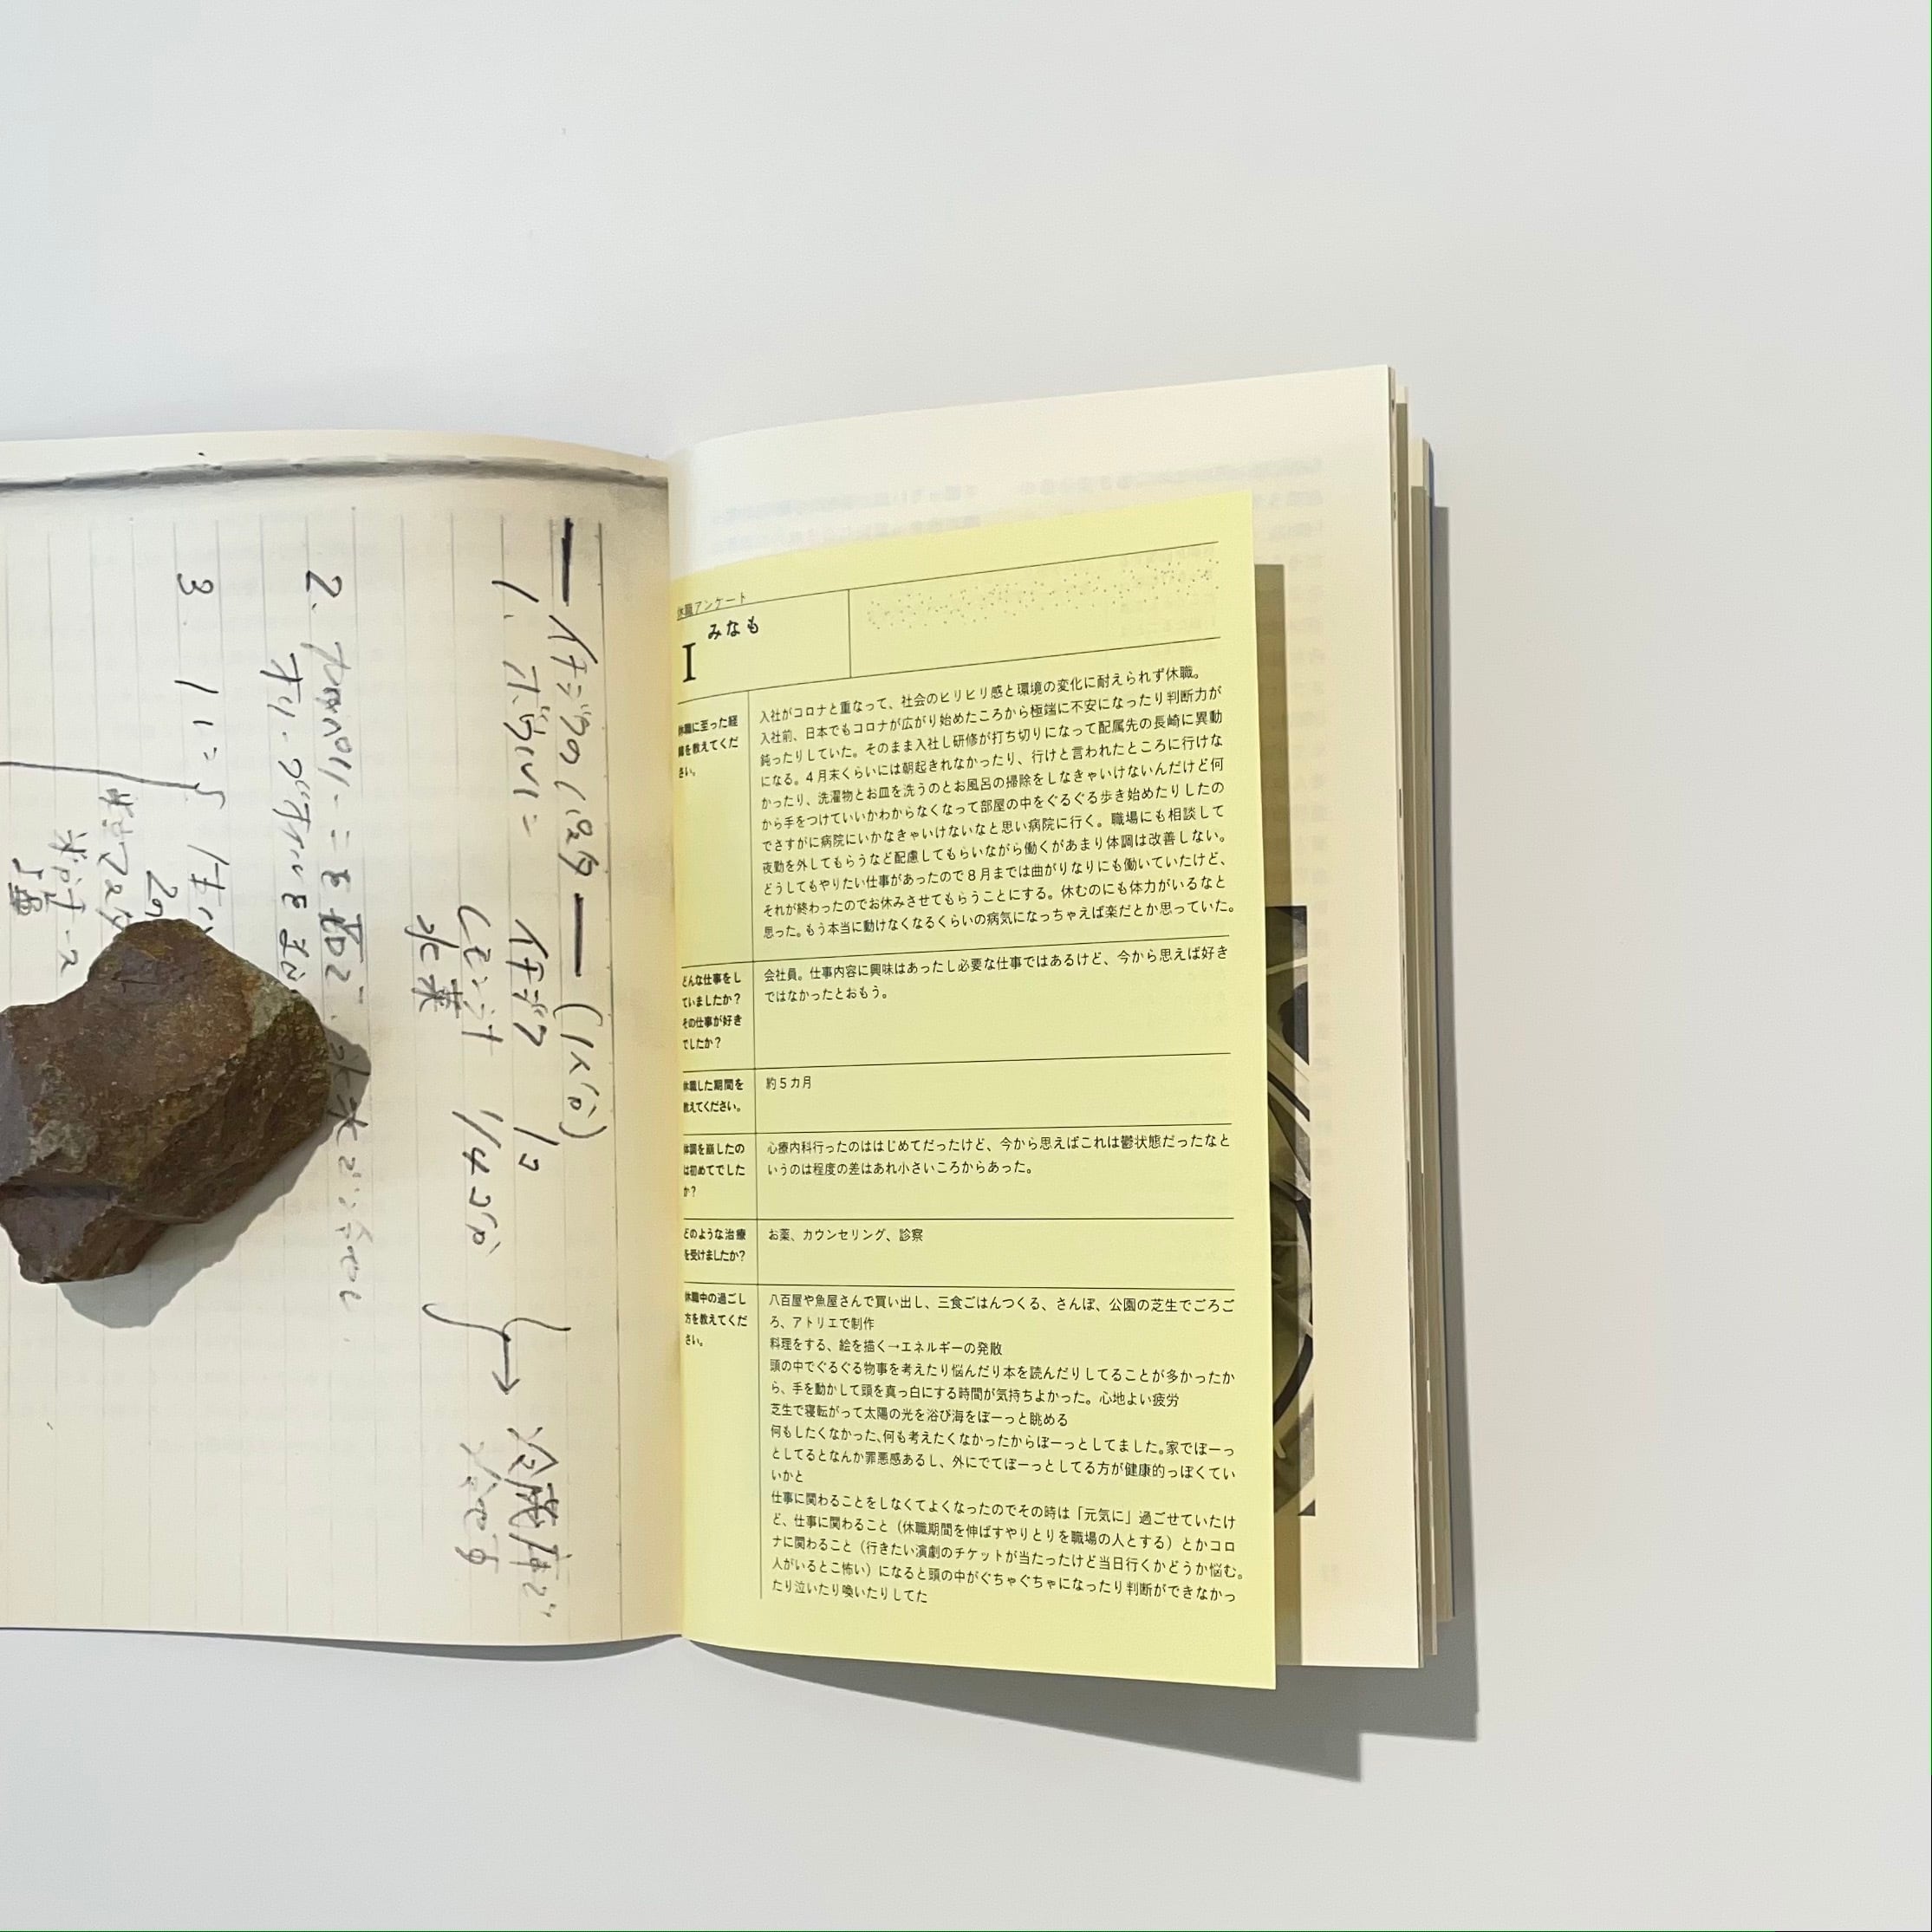 休職アンケート
I
みなも
休職に至った経
緯を教えてくだ
さい。
入社がコロナと重なって、社会のピリピリ感と環境の変化に耐えられず休職。
入社前、日本でもコロナが広がり始めたころから極端に不安になったり判断力が
鈍ったりしていた。そのまま入社し研修が打ち切りになって配属先の長崎に異動
になる。4月末くらいには朝起きれなかったり、行けと言われたところに行けな
かったり、洗濯物とお皿を洗うのとお風呂の掃除をしなきゃいけないんだけど何
から手をつけていいかわからなくなって部屋の中をぐるぐる歩き始めたりしたの
でさすがに病院にいかなきゃいけないなと思い病院に行く。職場にも相談して
夜勤を外してもらうなど配慮してもらいながら働くがあまり体調は改善しない。
どうしてもやりたい仕事があったので8月までは曲がりなりにも働いていたけど、
それが終わったのでお休みさせてもらうことにする。休むのにも体力がいるなと
思った。もう本当に動けなくなるくらいの病気になっちゃえば楽だとか思っていた。
どんな仕事をし
ていましたか？
その仕事が好き
でしたか？
会社員。仕事内容に興味はあったし必要な仕事ではあるけど、今から思えば好き
ではなかったとおもう。
休職した期間を
教えてください。
約5カ月
体調を崩したの
は初めてでした
か？
心療内科行ったのははじめてだったけど、今から思えばこれは鬱状態だったなと
いうのは程度の差はあれ小さいころからあった。
どのような治療
を受けましたか？
お薬、カウンセリング、診察
休職中の過ごし
方を教えてくだ
さい。
八百屋や魚屋さんで買い出し、三食ごはんつくる、さんぽ、公園の芝生でごろご
ろ、アトリエで制作
料理をする、絵を描く→エネルギーの発散
頭の中でぐるぐる物事を考えたり悩んだり本を読んだりしてることが多かったか
ら、手を動かして頭を真っ白にする時間が気持ちよかった。心地よい疲労
芝生で寝転がって太陽の光を浴び海をぼーっと眺める
何もしたくなかった、何も考えたくなかったからぼーっとしてました。家でぼーっ
としてるとなんか罪悪感あるし、外にでてぼーっとしてる方が健康的っぽくてい
いかと
仕事に関わることをしなくてよくなったのでその時は「元気に」過ごせていたけ
ど、仕事に関わること（休職期間を伸ばすやりとりを職場の人とする）とかコロ
ナに関わること（行きたい演劇のチケットが当たったけど当日行くかどうか悩む。
人がいるとこ怖い）になると頭の中がぐちゃぐちゃになったり判断ができなかっ
たり泣いたり喚いたりしてた
1.
イチジク
1コ
レモン汁
1/4コ分
氷水
2.
3